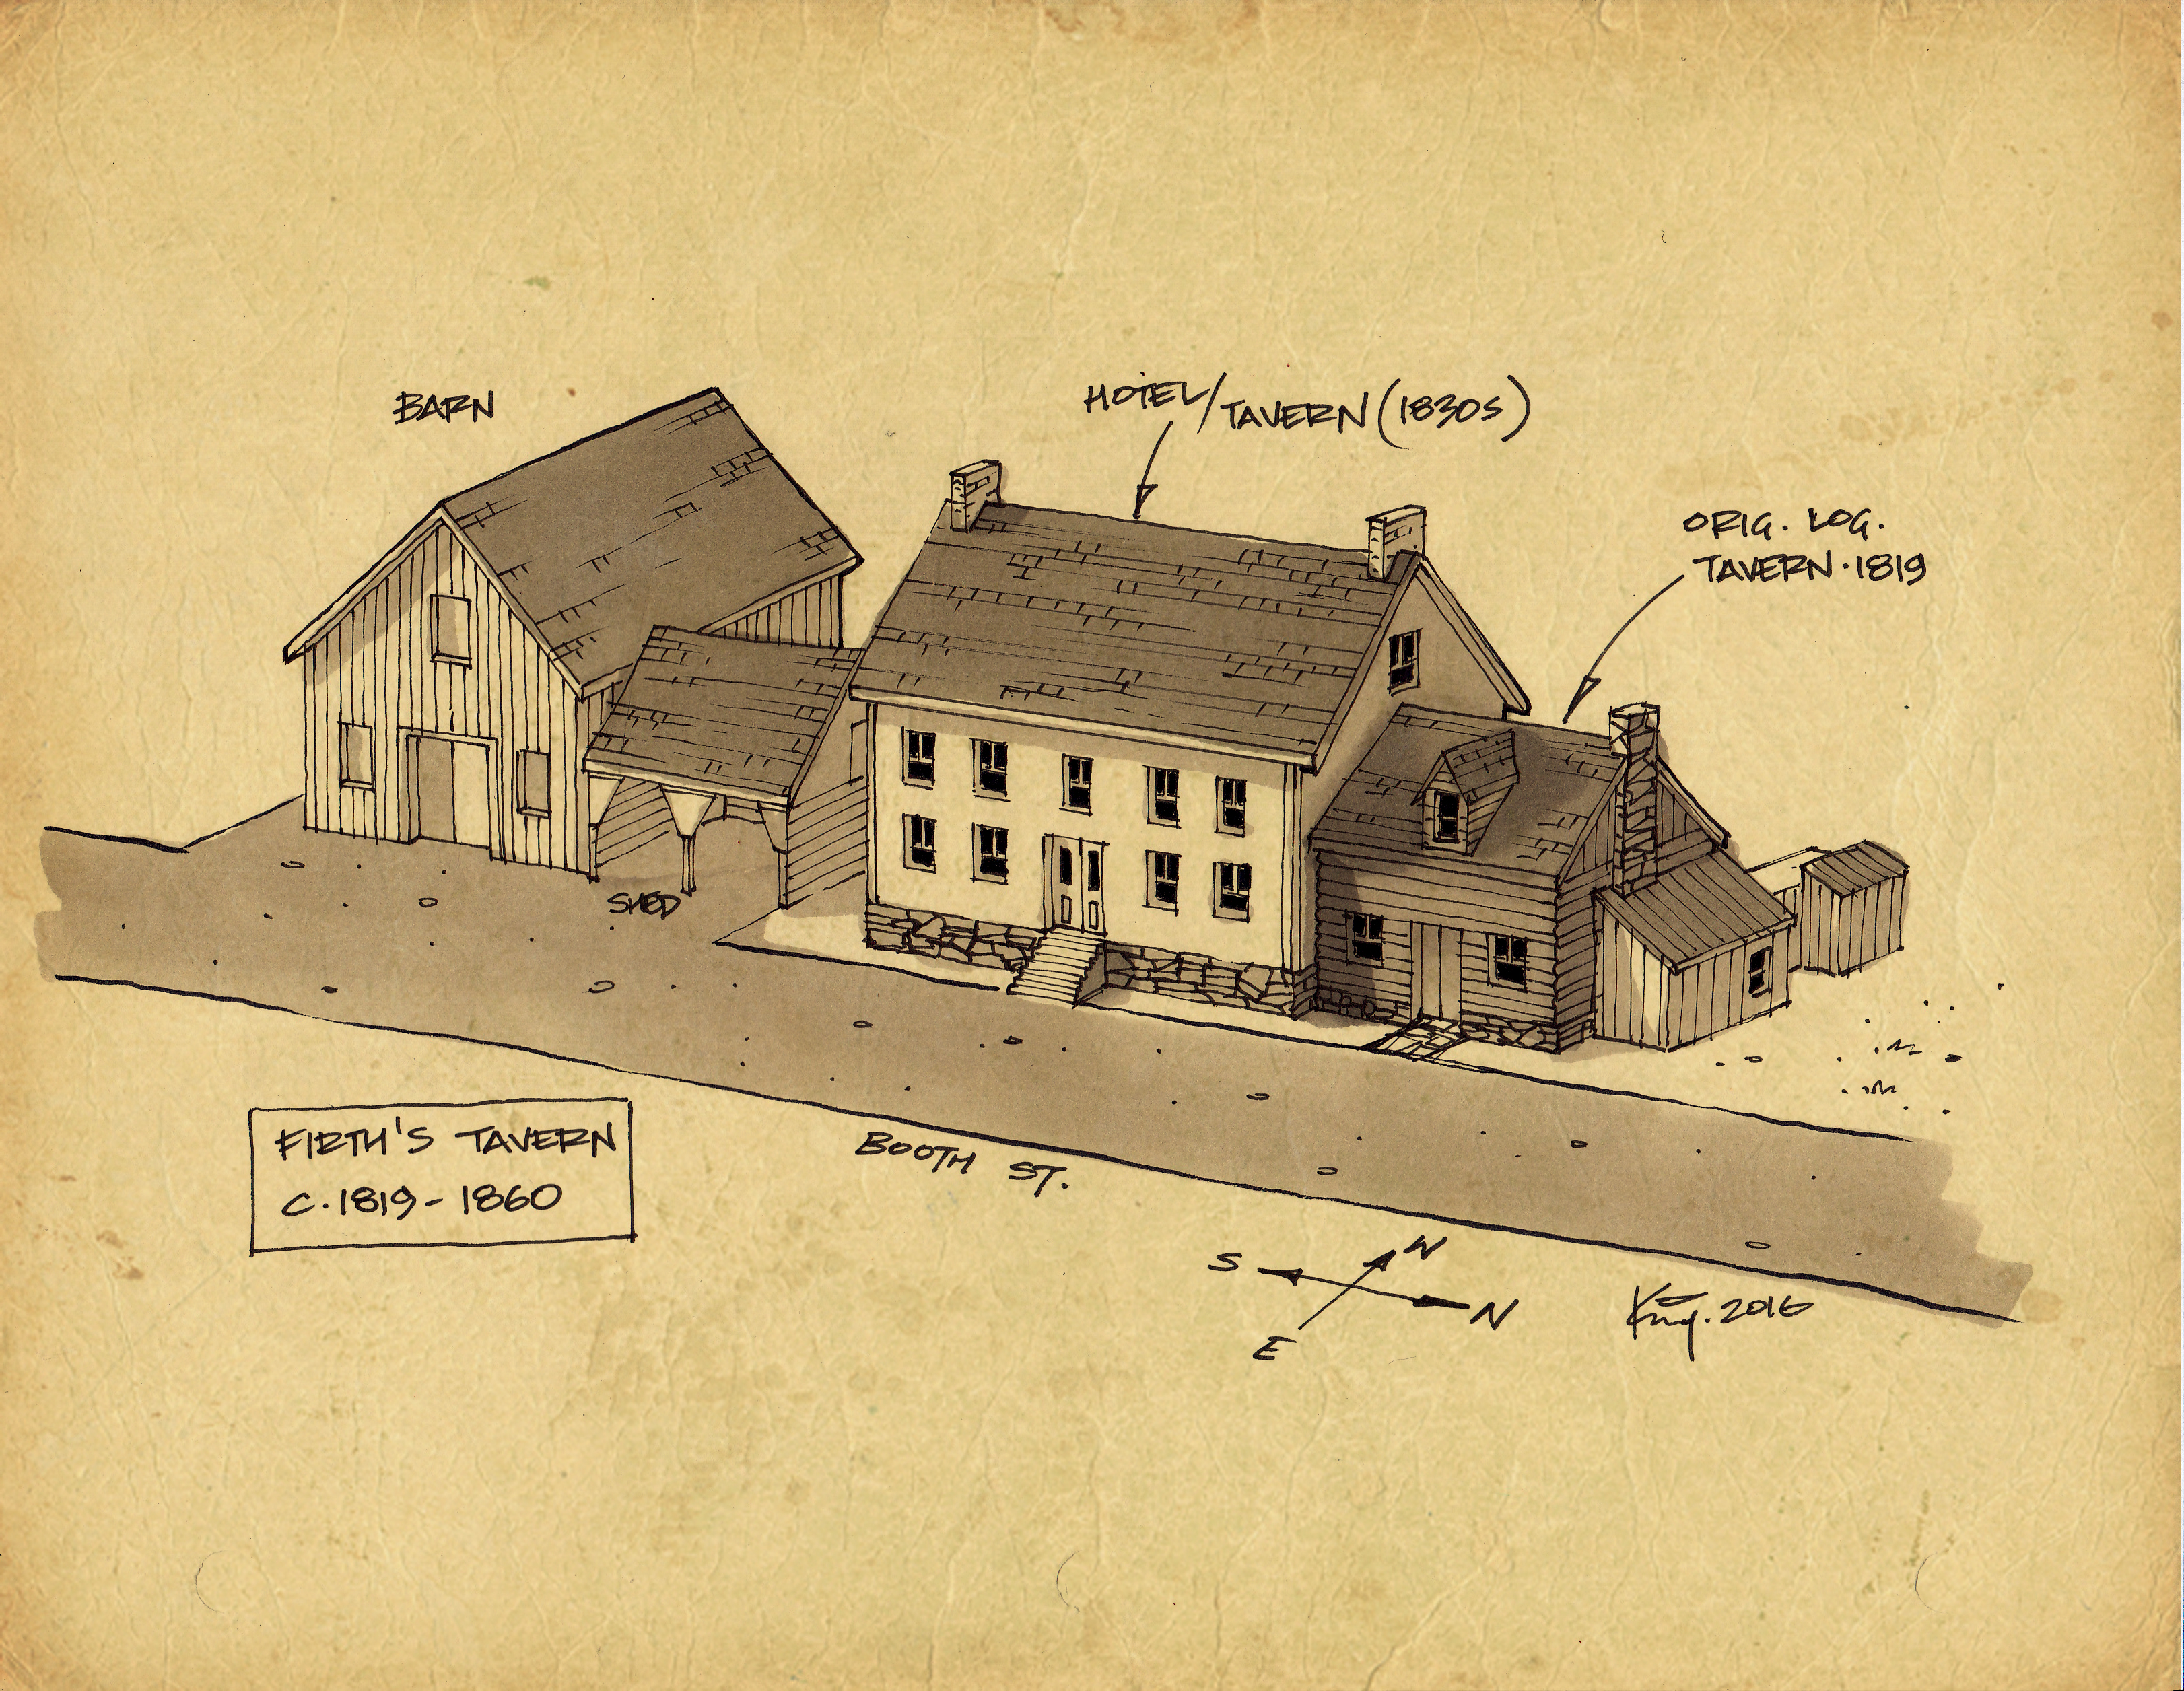 BARN
HOTEL/TAVERN (1830S)
ORIG. LOG.
TAVERN · 1819
SHED
FIRTH'S TAVERN
C. 1819 - 1860
BOOTH ST.
S
W
N
E
King. 2016